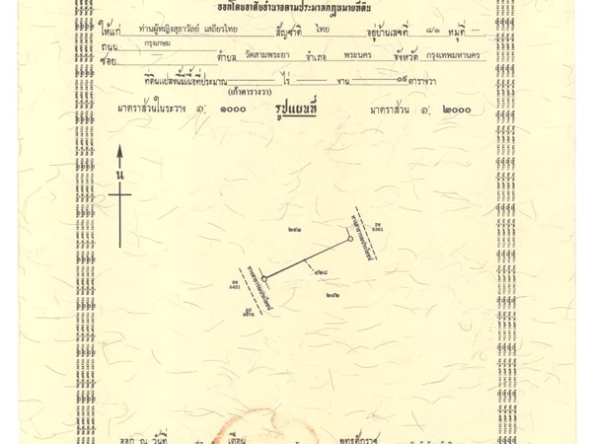 ออกโดยอาศัยอำนาจตามประมวลกฎหมายที่ดิน
ให้แก่ ท่านผู้หญิงสุธาวัลย์ เสถียรไทย สัญชาติ ไทย อยู่บ้านเลขที่ ๘/๑ หมู่ที่ -
ถนน กรุงเกษม
ซอย ตำบล วัดสามพระยา อำเภอ พระนคร จังหวัด กรุงเทพมหานคร
ที่ดินแปลงนี้มีเนื้อที่ประมาณ ไร่ งาน ๐๙ ตารางวา
(เก้าตารางวา)
มาตราส่วนในระวาง ๑: ๑๐๐๐ รูปแผนที่ มาตราส่วน ๑: ๒๐๐๐
น
๒๔๑
ทางสาธารณประโยชน์
ทางสาธารณประโยชน์
๒๔๒
ออก ณ วันที่ เดือน พุทธศักราช